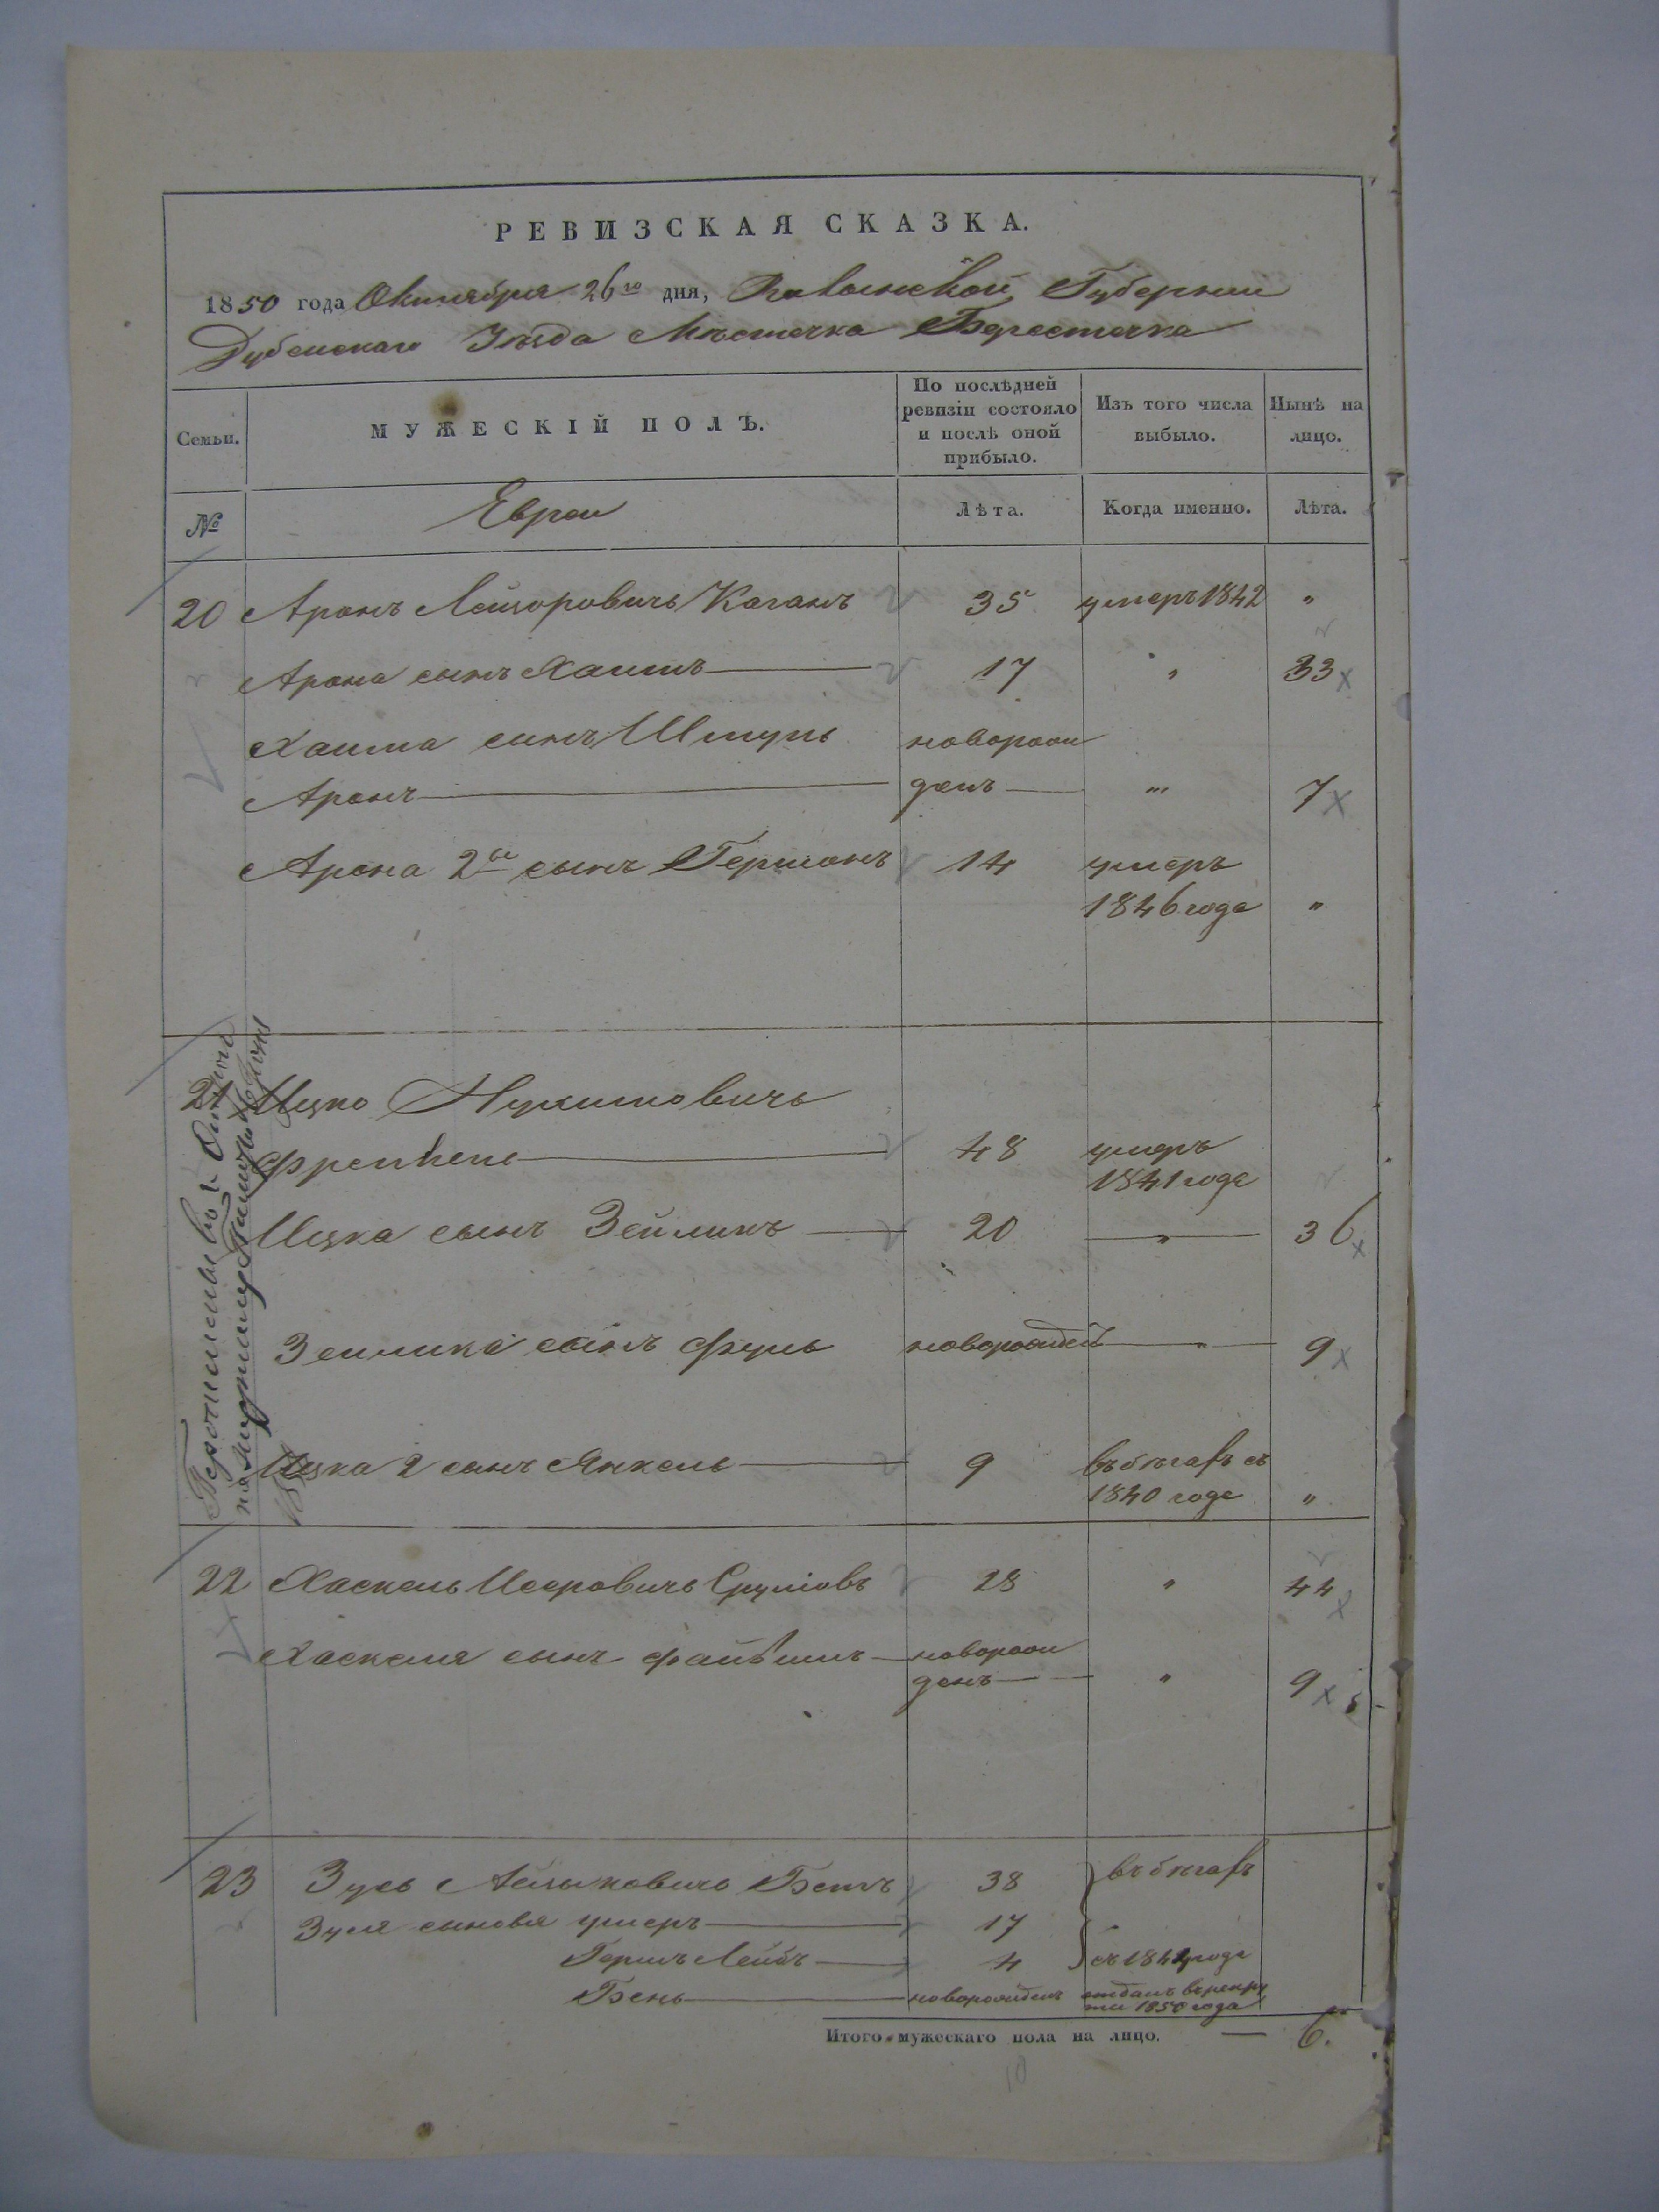 РЕВИЗСКАЯ СКАЗКА.
1850 года Октября 26го дня, Волынской Губернии
Дубенскаго Уѣзда Мѣстечка Берестечка
Семьи.
МУЖЕСКІЙ ПОЛЪ.
По послѣдней ревизіи состояло и послѣ оной прибыло.
Изъ того числа выбыло.
Нынѣ на лицо.
№
Евреи
Лѣта.
Когда именно.
Лѣта.
20 Аронъ Лейзоровичъ Каганъ 35 умеръ 1842 "
Арона сынъ Хаимъ 17 " 33
Хаима сынъ Шмуль новорож
Аронъ денъ " 7
Арона 2й сынъ Гершонъ 14 умеръ
1846 года "
21 Ицко Нухимовичъ
48 умеръ
1841 года
Ицка сынъ Зейликъ 20 " 36
Зейлика сынъ новорожденъ " 9
Ицка 2 сынъ Янкель 9 въ бѣгахъ съ
1840 года "
22 Хаскель Иосровичъ Сруліовъ 28 " 44
Хаскеля сынъ Файвишъ новорож
денъ " 9
23 Зусь Айзиковичъ 38 въ бѣгахъ
Зуся сыновья умеръ 17 "
Гершъ Лейбъ 4 съ 1844 года
Бень новорожденъ отданъ въ рекру
ты 1850 года
Итого мужескаго пола на лицо. — 6.
10